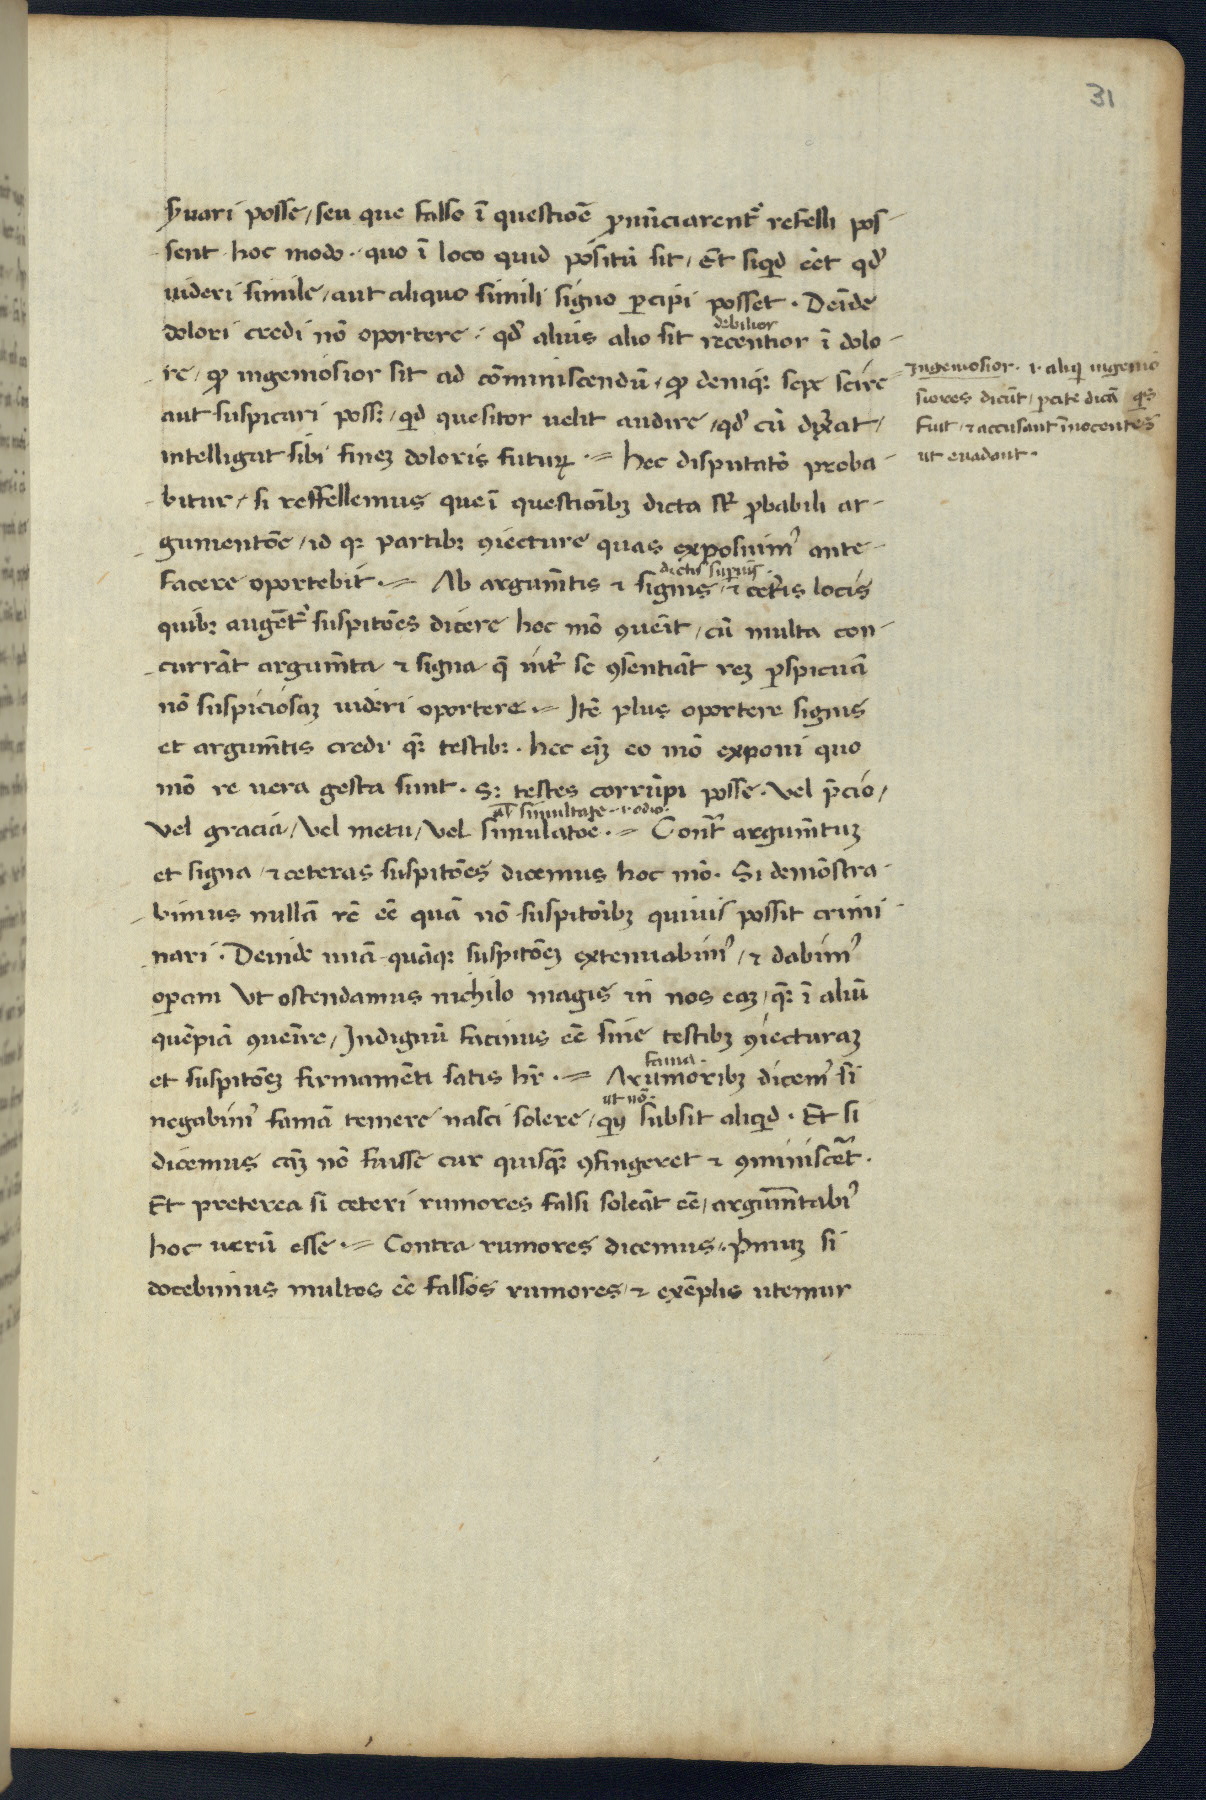 31
ẜuari posse / seu que falso ī questiōe ꝓnūciarent᷑ refelli pos-
sent hoc modo · quo ī loco quid positū sit / Et siqͥd eēt qd̕
uideri simile / aut aliquo simili signo ꝑcipi posset · Deīde
debilior
dolori credi nō oportere · qd̕ alius alio sit recentior ī dolo-
re / qͦ ingeniosior sit ad cōminiscendū / qͦ deniqꝫ sepe scire
aut suspicari possꝫ / qͥd quesitor uelit audire / qd̕ cū dix̕it /
intelligat sibi fineꝫ doloris futuꝝ · = hec disputatō proba-
bitur / si reffellemus que ī questiōibꝫ dicta st̄ ꝓbabili ar-
gumentōe / id qꝫ partibꝫ ꝯiecture quas exposuim᷒ ante
dictis supius̄
facere oportebit · = Ab argum̄tis ⁊ signis / ⁊ cet̕is locis
quibꝫ augēt᷑ suspitōes dicere hoc mō ꝯueīt / cū multa con-
currāt argum̄ta ⁊ signa q̄ int̕ se ꝯsentiāt reꝫ ꝑspicuā
nō suspiciosaꝫ uideri oportere · = Itē plus oportere signis
et argum̄tis credi qͣꝫ testibꝫ · hec em̄ eo mō exponi quo
mō re uera gesta sunt · Sꝫ testes corrūpi posse · vel p̄cio /
al̄ simultate · i · odio ·
vel gracia / vel metu / vel simulatōe · = Cont̕ argum̄tuꝫ
et signa / ⁊ ceteras suspitōes dicemus hoc mō · Si demōstra-
bimus nullā rē eē quā nō suspitōibꝫ quiuis possit crimi-
nari · Deinde unā quāqꝫ suspitōeꝫ extenuabim᷒ / ⁊ dabim᷒
operam vt ostendamus nichilo magis in nos eaꝫ / qͣꝫ ī aliū
quēpiā ꝯueīre / Indignū facinus eē sine testibꝫ ꝯiecturaꝫ
fama ·
et suspitōeꝫ firmamēti satis hr̄e · = A rumoribꝫ dicem᷒ si
ut nō ·
negabim᷒ famā temere nasci solere / qͥn subsit aliqͥd · Et si
dicemus cāꝫ nō fuisse cur quisqͣꝫ ꝯfingeret ⁊ ꝯminiscet᷑ ·
Et preterea si ceteri rumores falsi soleāt eē / argum̄tabim᷒
hoc uerū esse · = Contra rumores dicemus · Pͥmuꝫ si
docebimus multos eē falsos rumores / ⁊ exēplis utemur
Ingeniosior · i · aliqͥ ingenio
siores dicūt / ꝑcite dicā qͥs
fuit / ⁊ accusant īnocentes
ut euadant ·